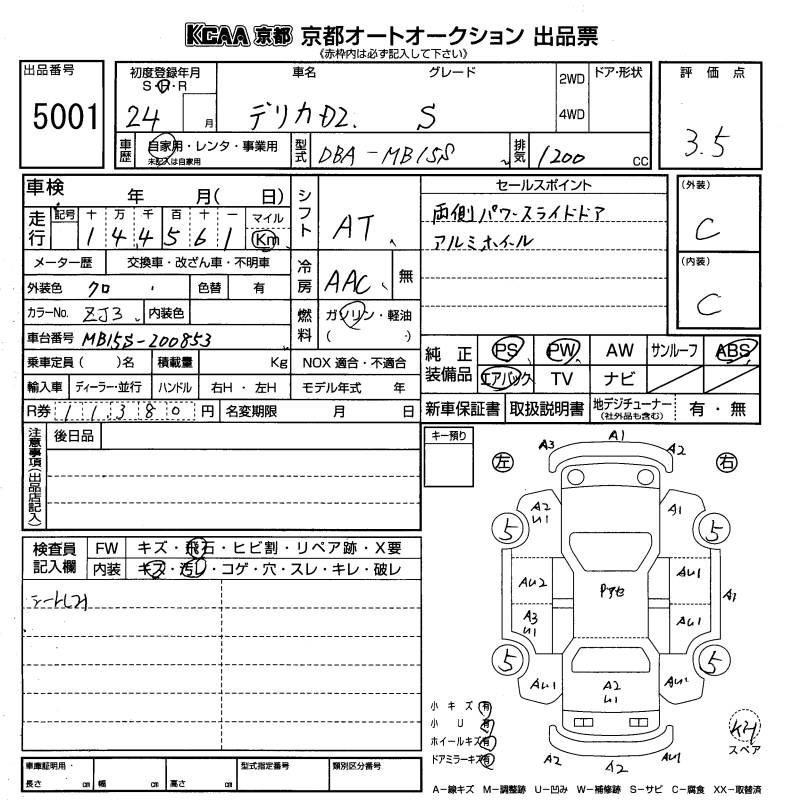 KCAA 京都 京都オートオークション 出品票
《赤枠内は必ず記入して下さい》
出品番号
5001
初度登録年月
S・H・R
24 月
車名
グレード
デリカD2. S
2WD
4WD
ドア・形状
評価点
3.5
車歴
自家用・レンタ・事業用
未記入は自家用
型式
DBA-MB15S
排気
1200 cc
車検 年 月( 日)
走行
記号 十 万 千 百 十 一 マイル
1 4 4 5 6 1 Km
メーター歴 交換車・改ざん車・不明車
外装色 クロ 色替 有
カラーNo. ZJ3 内装色
車台番号 MB15S-200853
乗車定員( )名 積載量 Kg NOX 適合・不適合
輸入車 ディーラー・並行 ハンドル 右H・左H モデル年式 年
R券 11380 円 名変期限 月 日
シフト
AT
冷房
AAC 無
燃料
ガソリン・軽油
( )
セールスポイント
両側パワースライドドア
アルミホイール
(外装)
C
(内装)
C
純正装備品
PS PW AW サンルーフ ABS
エアバック TV ナビ
新車保証書 取扱説明書 地デジチューナー (社外品も含む) 有・無
注意事項(出品店記入)
後日品
キー預り
検査員記入欄
FW キズ・飛石・ヒビ割・リペア跡・X要
内装 キズ・汚レ・コゲ・穴・スレ・キレ・破レ
左 右
A3 A1 A2
A2 U1
A1
5 5
AU2
AU1
Pアセ
A1
A3 U1
AU1
5 5
AU1
A2 U1
AU1
A2 A2 AU1
小キズ 有
小U 有
ホイールキズ 有
ドアミラーキズ 有
スペア
車庫証明用・
長さ cm 幅 cm 高さ cm
型式指定番号
類別区分番号
A-線キズ M-調整跡 U-凹み W-補修跡 S-サビ C-腐食 XX-取替済